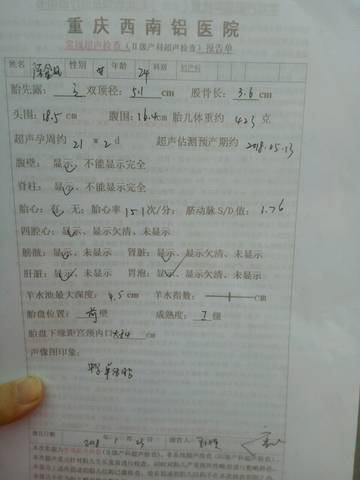 重庆西南铝医院
常规超声检查（II级产科超声检查）报告单
姓名 性别 女 年龄 24 科别 妇产科
胎先露： 双顶径： 5.1 cm 股骨长： 3.6 cm
头围： 18.5 cm 腹围： 16.4 cm 胎儿体重约 423 克
超声孕周约 21 w 2 d 超声估测预产期约 2018.05.23
腹壁： 显示、不能显示完全
脊柱： 显示、不能显示完全
胎心： 有、无；胎心率 151 次/分； 脐动脉 S/D 值： 3.76
四腔心： 显示、显示欠清、未显示
膀胱： 显示、未显示 肾脏： 显示、显示欠清、未显示
肝脏： 显示、未显示 胃泡： 显示、显示欠清、未显示
羊水池最大深度： 4.5 cm 羊水指数： cm
胎盘位置： 前 壁 成熟度： I 级
胎盘下缘距宫颈内口 cm
声像图印象：
单活胎
报告日期 2018 年 1 月 23 日 报告人